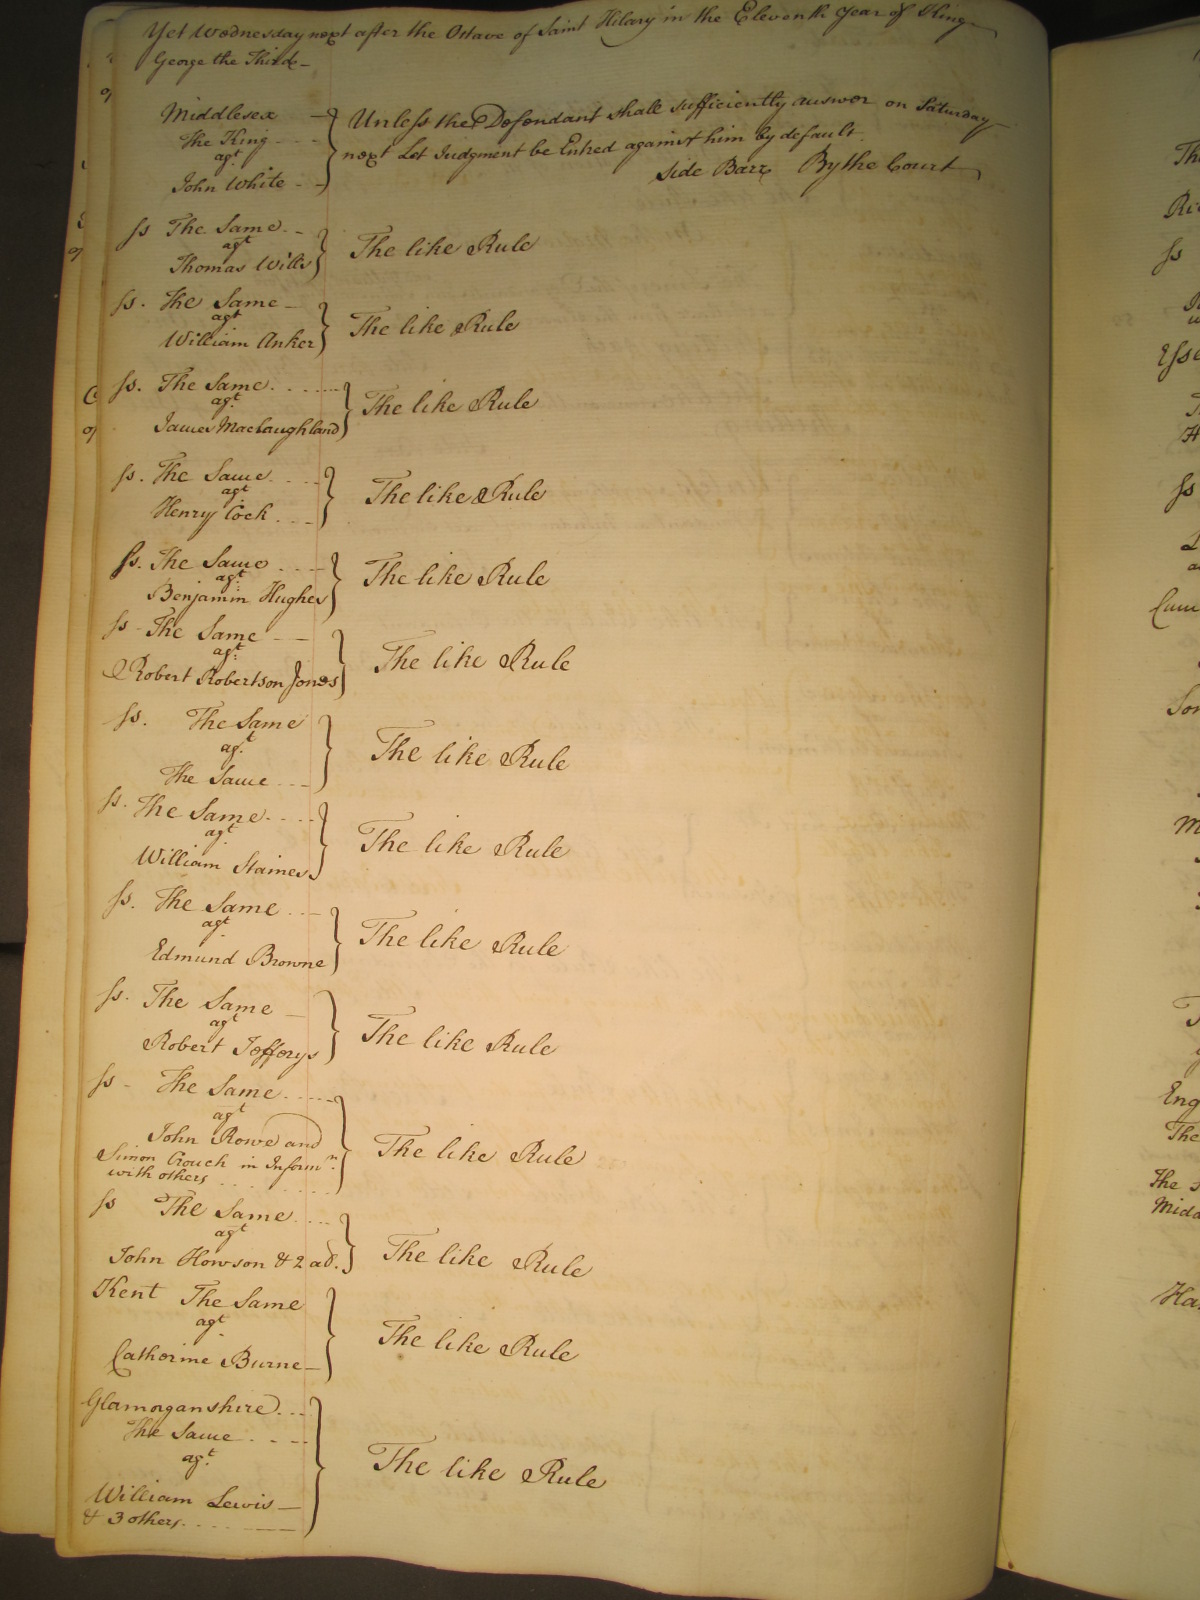 Yet Wednesday next after the Octave of Saint Hilary in the Eleventh Year of King
George the Third
Middlesex
The King
agt
John White
Unless the Defendant shall sufficiently answer on Saturday
next Let Judgment be Entred against him by default
Side Barr By the Court
ss The Same
agt
Thomas Wills
The like Rule
ss. The Same
agt
William Anker
The like Rule
ss. The Same
agt
James Maclaughland
The like Rule
ss. The Same
agt
Henry Cock
The like Rule
ss. The Same
agt
Benjamin Hughes
The like Rule
ss The Same
agt
Robert Robertson Jones
The like Rule
ss. The Same
agt
The Same
The like Rule
ss. The Same
agt
William Staines
The like Rule
ss. The Same
agt
Edmund Browne
The like Rule
ss. The Same
agt
Robert Jefferys
The like Rule
ss The Same
agt
John Rowe and
Simon Crouch in Inform.n
with others
The like Rule
ss The Same
agt
John Howson & 2 ad.
The like Rule
Kent The Same
agt
Catherine Burne
The like Rule
Glamorganshire
The Same
agt
William Lewis
& 3 others
The like Rule